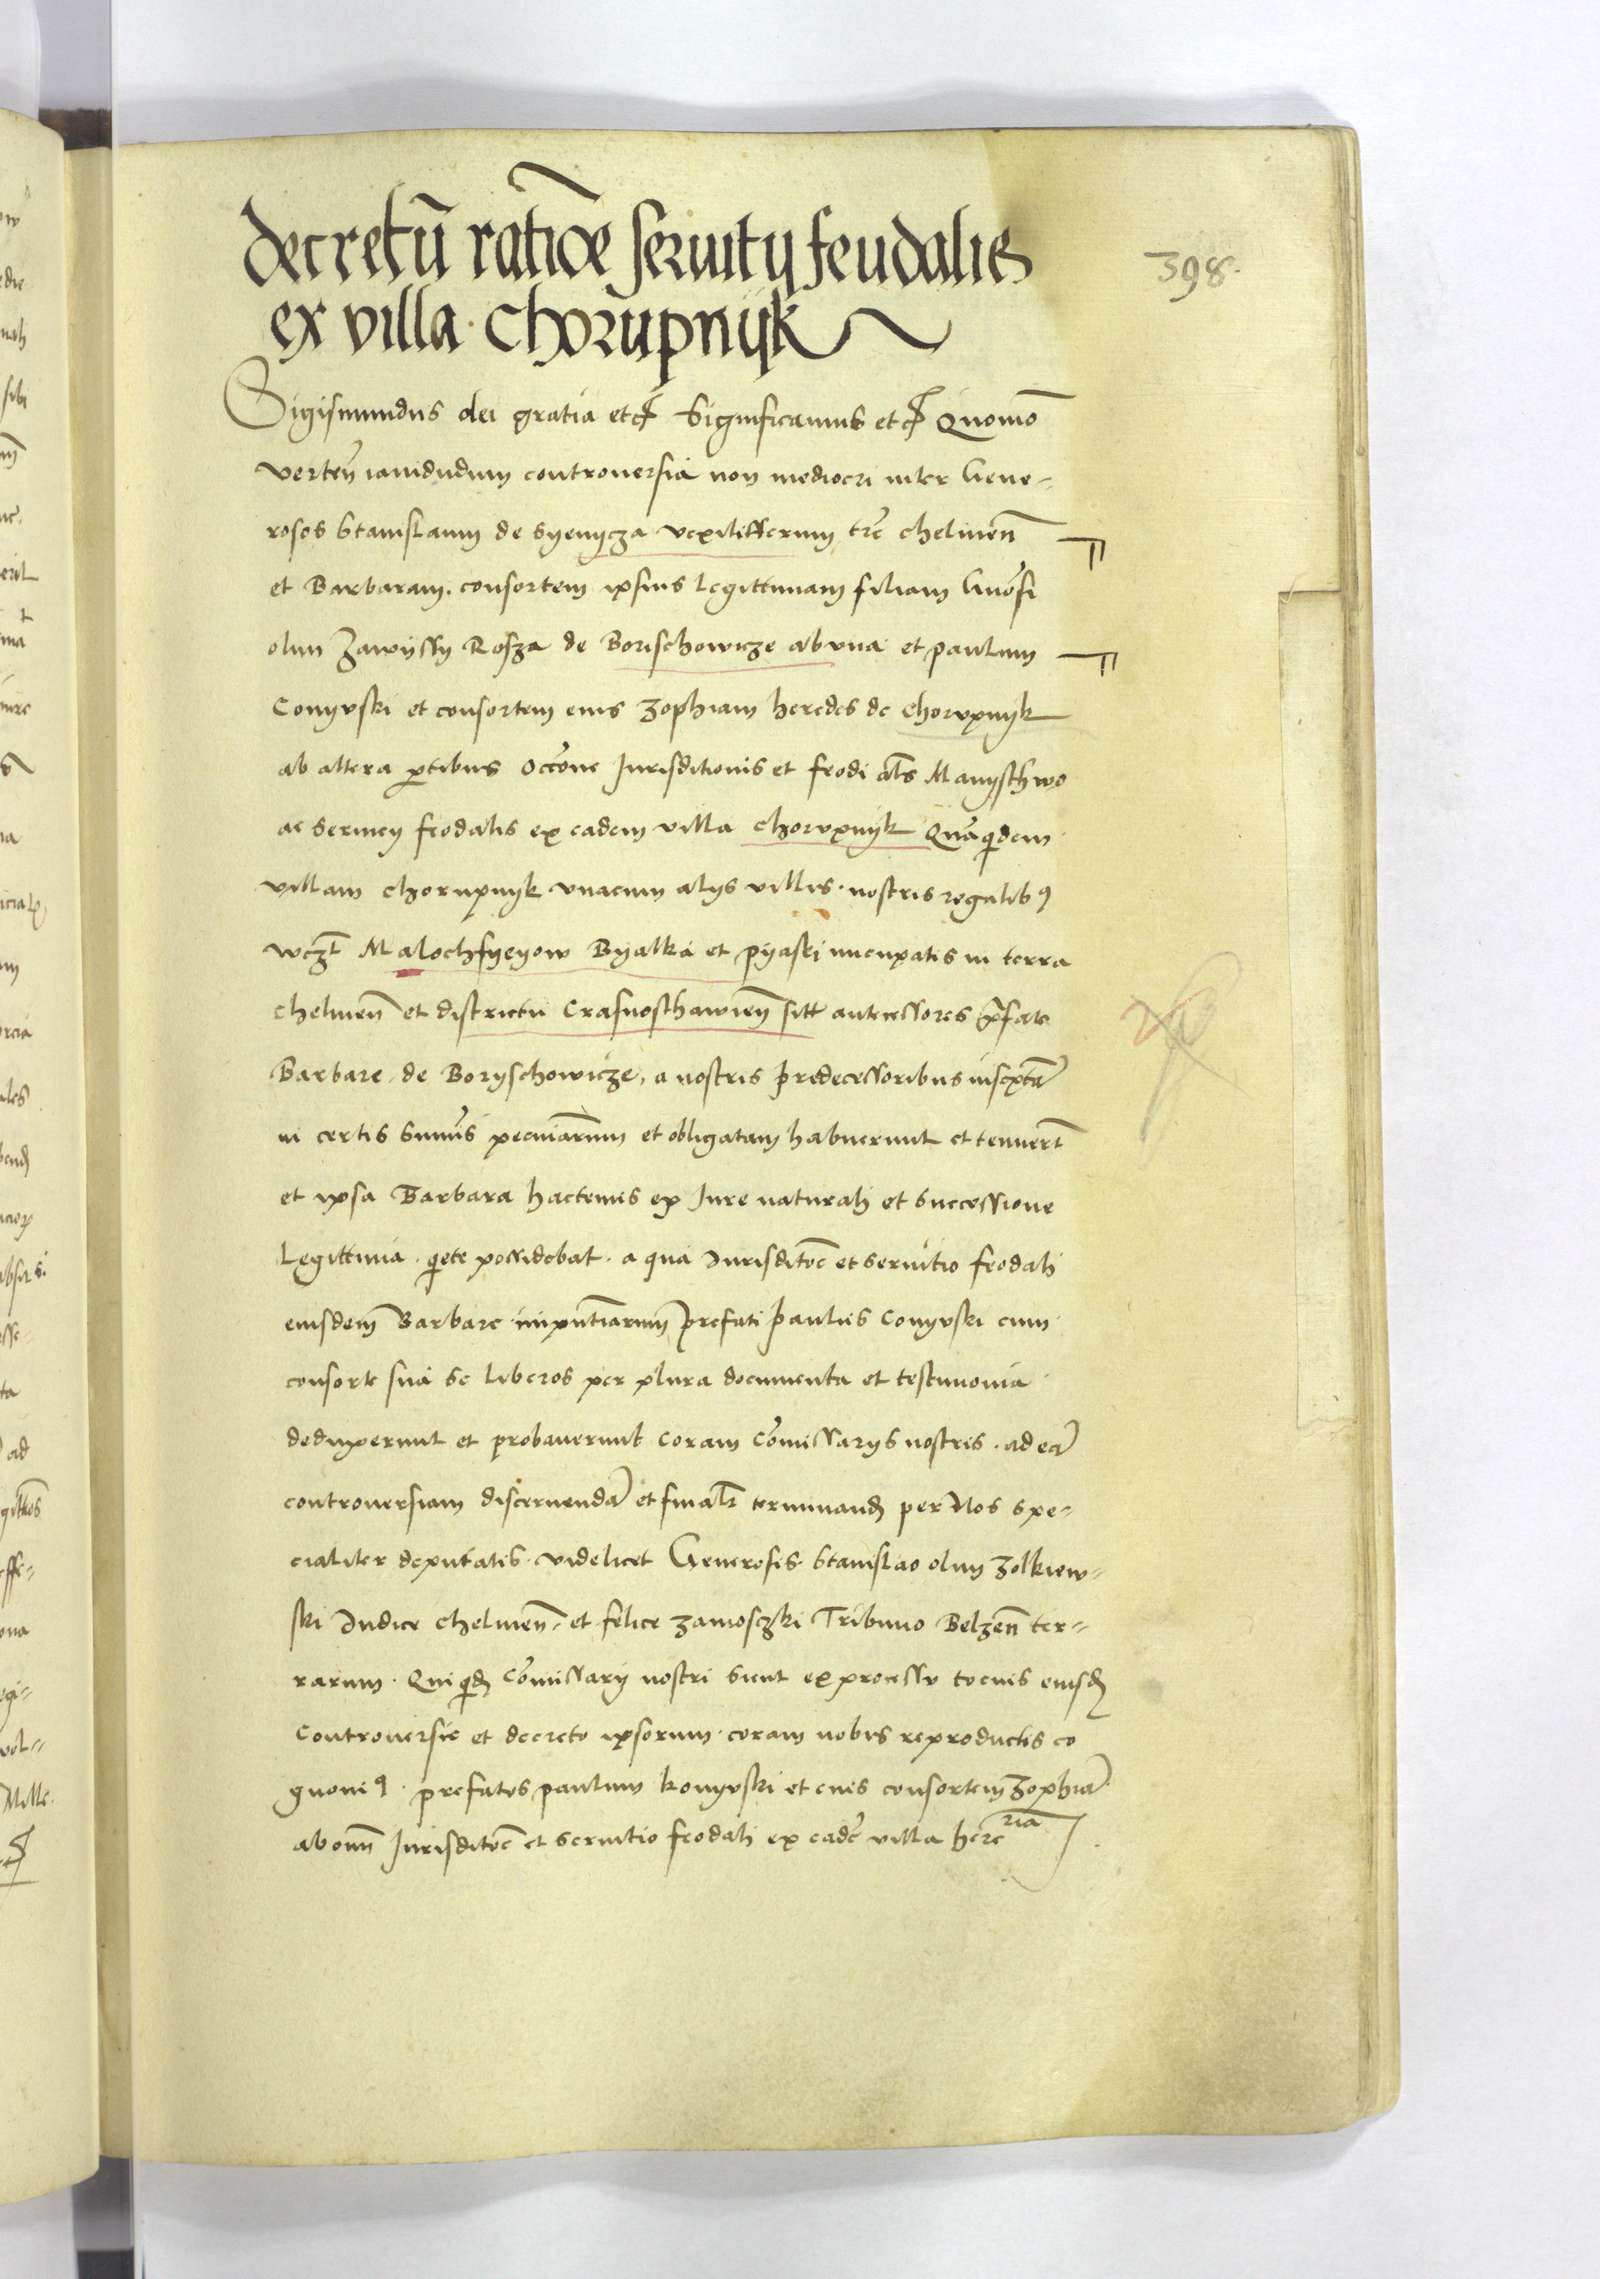 decretū ratiōe seruitij feudalis
ex villa chorupnijk
398.
Sigismundus dei gratia etc Significamus etc Quomō
verteñ iamdudum controuersia non mediocri inter Gene-
rosos Stanislaum de Syenycza vexilifferum tre͂ chelmeñ
et Barbaram consortem ipsius legittimam filiam Gnōsi
olim Zawyssy Rosza de Borischowicze ab vna et paulum
Conyvski et consortem eius Zophiam heredes de chorupnyk
ab altera ptibus occōne Jurisditionis et feodi als Manysthwo
ac seruicij feodalis ex eadem villa chorupnyk Quāquidem
villam chorupnyk vnacum alys villis nostris regalibꝯ
wczt Malochfyeyow Byalka et pyaski nuncupatis in terra
chelmeñ et districtu Crasnosthawieñ sitt antecessores p̄fate
Barbare de Boryschowicze a nostris predecessoribus inscptā
in certis summis pecuniarum et obligatam habuerunt et tenuert
et ipsa Barbara hactenus ex Jure naturali et successione
Legittima quiete possidebat a qua Jurisditōe et seruitio feodali
eiusdem Barbare prefati paulus Conyvski cum
consorte sua se liberos per plura documenta et testimonia
deduxerunt et probauerunt coram Comissarys nostris ad eā
controuersiam discernendā et finalr terminand per Nos spe-
cialiter deputatis videlicet Generosis Stanislao olim Zolkiew-
ski Judice chelmeñ et felice Zamosczki Tribuno Belzeñ ter-
rarum Qui quid Comissary nostri sicut ex processu tocius eiusd
Controuersie et decreto ipsorum coram nobis reproductis co
gnouiꝯ prefatos paulum konyvski et eius consortem Zophiā
ab omn Jurisditōe et seruitio feodali ex eadē villa here
ria